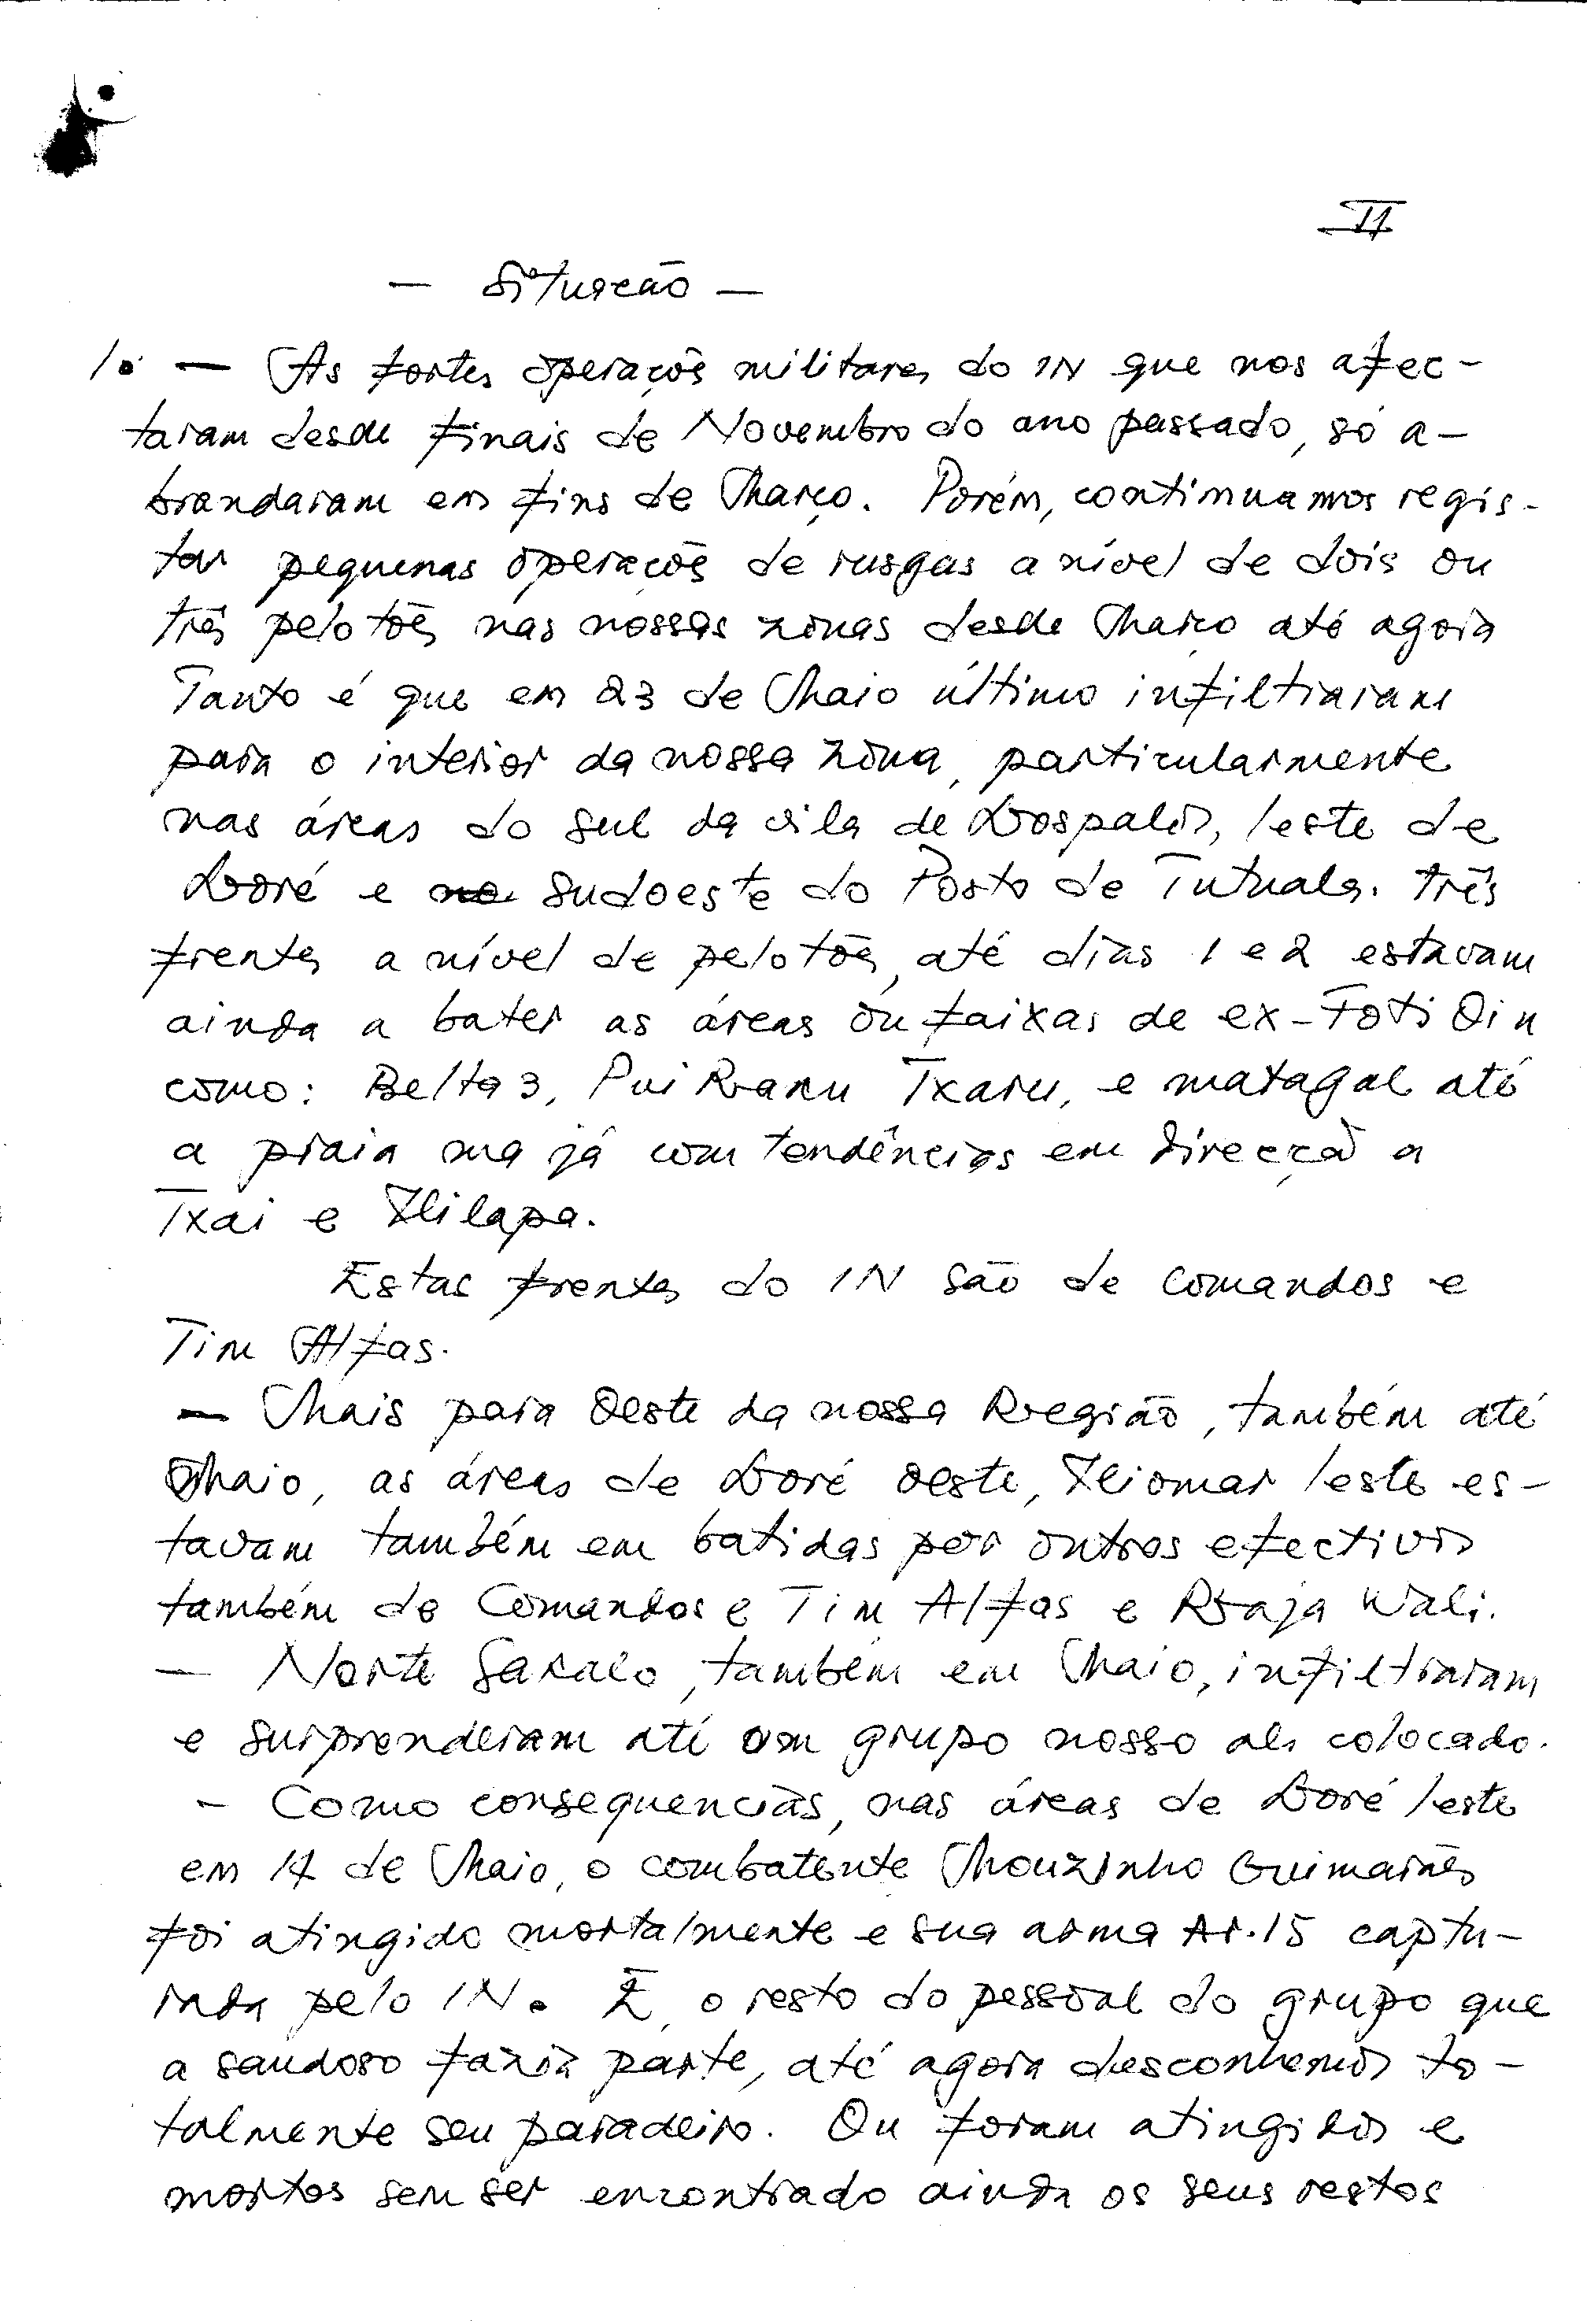 II
— Situação —
1º — As fortes operações militares do IN que nos afec-
taram desde finais de Novembro do ano passado, só a-
brandaram em fins de Março. Porém, continuamos regis-
tar pequenas operações de rusgas a nível de dois ou
três pelotões nas nossas zonas desde Março até agora
Tanto é que em 23 de Maio último infiltraram
para o interior da nossa zona, particularmente
nas áreas do sul da vila de Lospalos, leste de
Loré e sudoeste do Posto de Tutuala. Três
frentes a nível de pelotões, até dias 1 e 2 estavam
ainda a bater as áreas ou faixas de ex-Foti Oin
como: Belta 3, Pui Ranu Txaru, e matagal até
a praia ma já com tendências em direcção a
Txai e Ililapa.
Estas frentes do IN são de comandos e
Tim Alfas.
— Mais para Oeste da nossa Região, também até
Maio, as áreas de Loré oeste, Iliomar leste es-
tavam também em batidas por outros efectivos
também de Comandos e Tim Alfas e Raja Wali.
— Norte também em Maio, infiltraram
e surprenderam até um grupo nosso ali colocado.
- Como consequencias, nas áreas de Loré leste
em 14 de Maio, o combatente Mouzinho Guimarães
foi atingido mortalmente e sua arma Ar.15 captu-
rada pelo IN. E, o resto do pessoal do grupo que
a saudoso fazia parte, até agora desconhemos to-
talmente seu paradeiro. Ou foram atingidos e
mortos sem ser encontrado ainda os seus restos